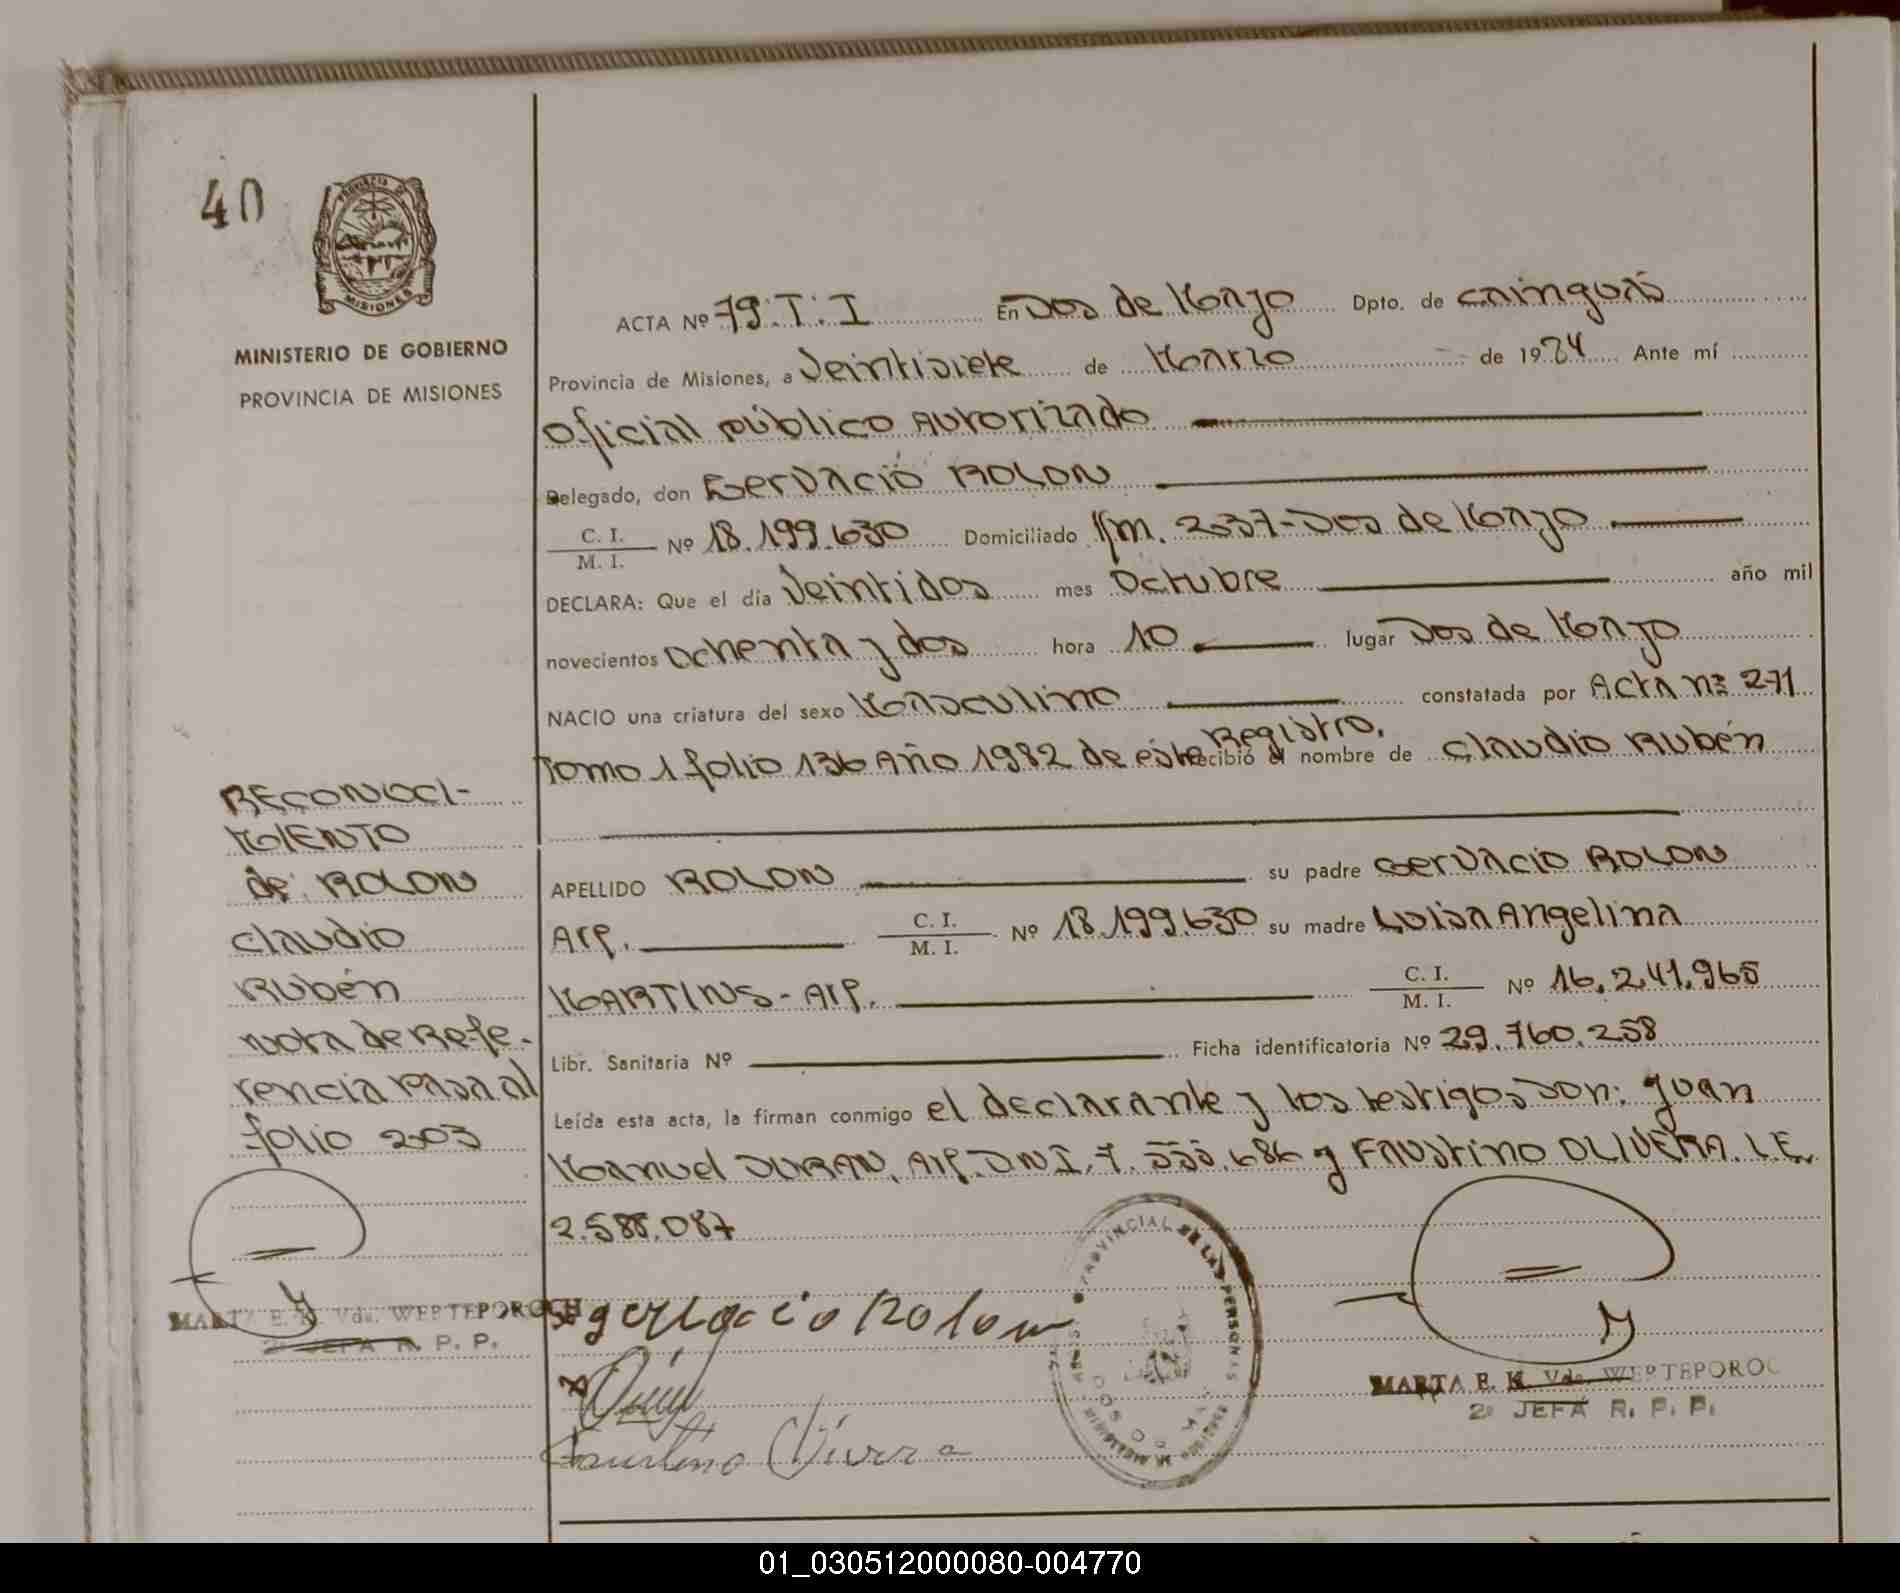 40
PROVINCIA DE
MISIONES
MINISTERIO DE GOBIERNO
PROVINCIA DE MISIONES
ACTA Nº 79.T.I En Dos de Mayo Dpto. de Cainguás
Provincia de Misiones, a Veintisiete de Marzo de 1984 Ante mí
Oficial público Autorizado
Delegado, don Gervacio ROLON
C. I.
M. I. Nº 18.199.630 Domiciliado Km. 237-Dos de Mayo
DECLARA: Que el día Veintidos mes Octubre año mil
novecientos ochenta y dos hora 10 lugar Dos de Mayo
NACIO una criatura del sexo Masculino constatada por Acta nº 271
Tomo 1 folio 136 Año 1982 de este Registro. recibió el nombre de Claudio Rubén
APELLIDO ROLON su padre Gervacio ROLON
Arg. C. I.
M. I. Nº 18.199.630 su madre Luisa Angelina
MARTINS-Arg. C. I.
M. I. Nº 16.241.965
Libr. Sanitaria Nº Ficha identificatoria Nº 29.760.258
Leída esta acta, la firman conmigo el declarante y los testigos Don: Juan
Manuel DURAN, Arg. D.N.I. 7.555.686 y Faustino OLIVERA. L.E.
2.588.087
RECONOCI-
MIENTO
de: ROLON
Claudio
Rubén
Nota de Refe-
rencia Pasa al
folio 203
MARTA E. K. Vda. WERTEPOROCH
2º JEFA R. P. P.
gervacio Rolon
Faustino Olivera
PROVINCIAL DE LAS PERSONAS
MARTA E. K. Vda. WERTEPOROC
2º JEFA R. P. P.
01_030512000080-004770